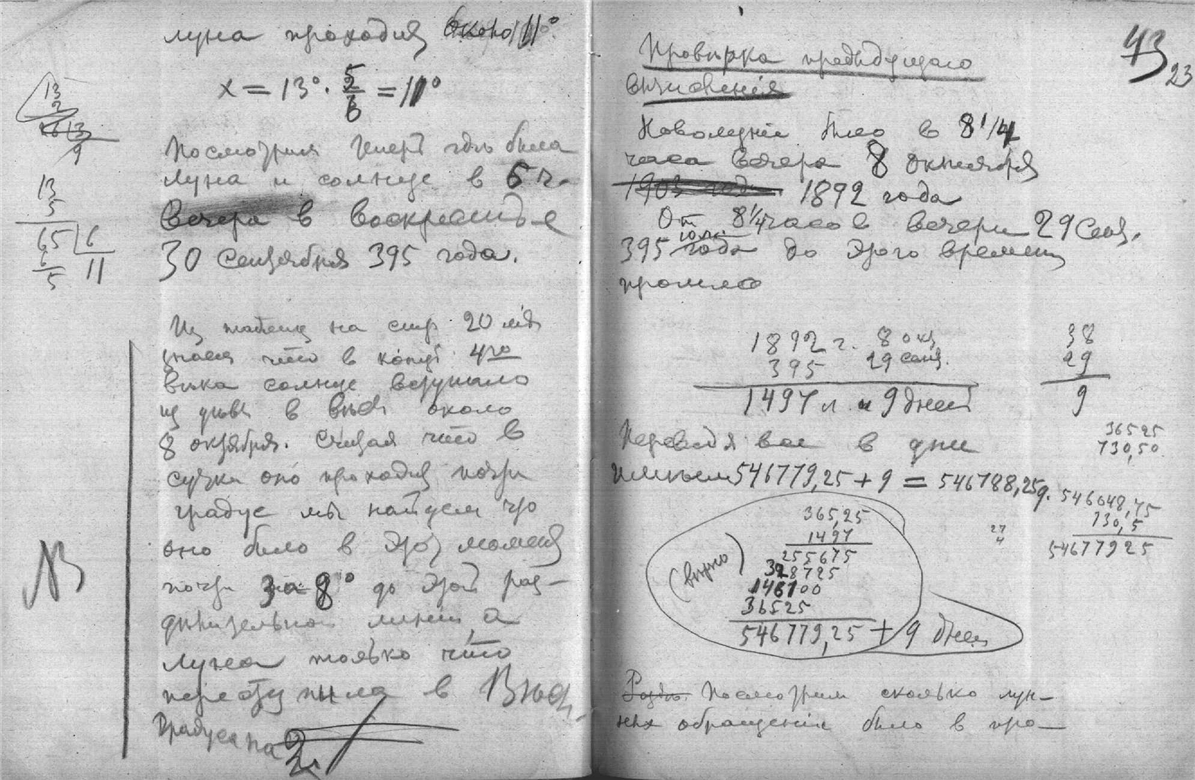 луна проходит около 11°
x = 13° · 5/6 = 11°
13
2
13
9
13
5
65 | 6
6 | 11
5
Посмотрим теперь где была
луна и солнце в 6 ч.
вечера в воскресенье
30 сентября 395 года.
Из таблиц на стр 20 мы
знаем что в конце 4го
века солнце вступало
из девы в весы около
8 октября. Считая что в
сутки оно проходит почти
градус мы найдем что
оно было в этот момент
почти за 8° до этой раз-
делительной линии, а
луна только что
переступила в Весы
градуса на 2
NB
43
23
Провѣрка предыдущаго
вычисления
Новолуніе было в 8 1/4
часа вечера 8 октября
1903 года 1892 года
От 8 1/4 часов вечера 29 сент.
395 года до этого времени
прошло
1892 г. 8 окт.
395 29 сент.
1497 л и 9 дней
38
29
9
Переводя все в дни
имѣем 546779,25 + 9 = 546788,25 д.
36525
730,50
546048,75
730,5
54677925
27
4
(видно)
365,25
1497
255675
328725
146100
36525
546779,25 + 9 дней
Посмотрим сколько лун-
ных обращений было в про-